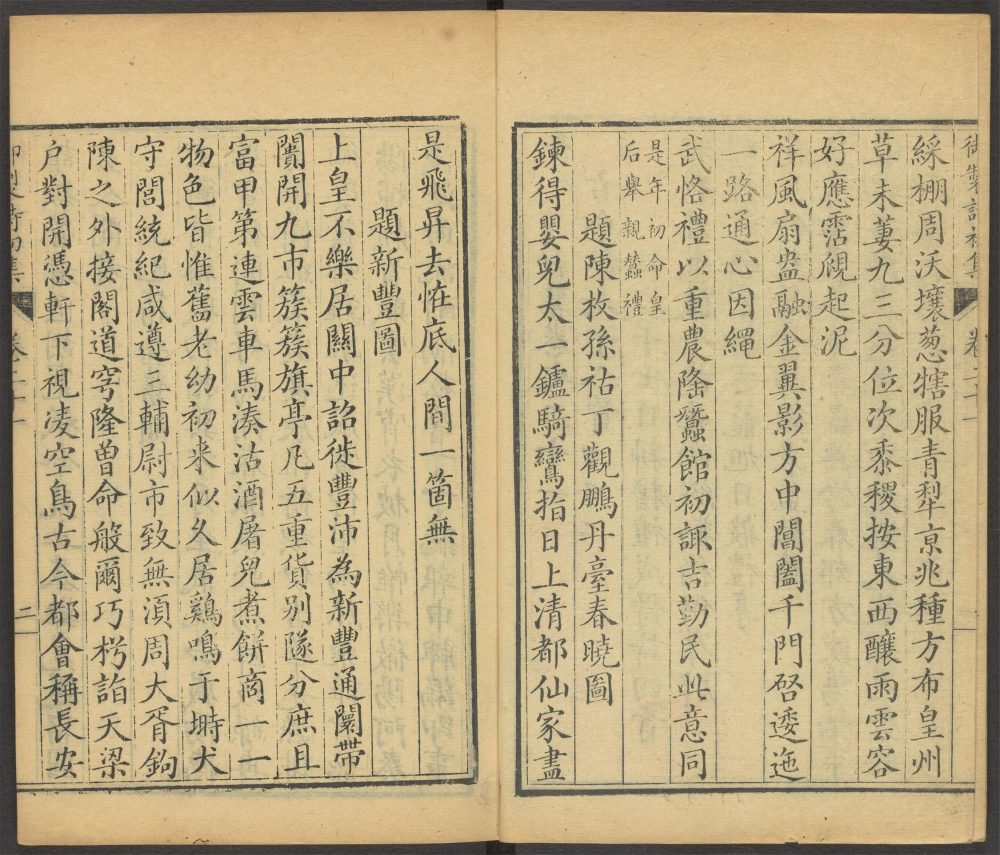 御製詩初集 卷二十一
綵棚周沃壤葱犗服青犁京兆種方布皇州
草未萋九三分位次黍稷按東西釀雨雲容
好應霑覛起泥
祥風扇盎融金翼影方中閶闔千門啓逶迤
一路通心因繩
武恪禮以重農隆蠶館初諏吉勤民此意同
是年初命皇
后舉親蠶禮
題陳枚孫祜丁觀鵬丹臺春曉圖
鍊得嬰兒太一鑪騎鸞指日上清都仙家盡
是飛昇去恠底人間一箇無
題新豐圖
上皇不樂居關中詔徙豐沛為新豐通闤帶
闠開九市簇簇旗亭凡五重貨別隧分庶且
富甲第連雲車馬湊沽酒屠兒煮餅商一一
物色皆惟舊老幼初来似久居鷄鳴于塒犬
守閭統紀咸遵三輔尉市致無湏周大胥鉤
陳之外接閣道穹隆曾命般爾巧枍詣天梁
户對開憑軒下視凌空鳥古今都會稱長安
二